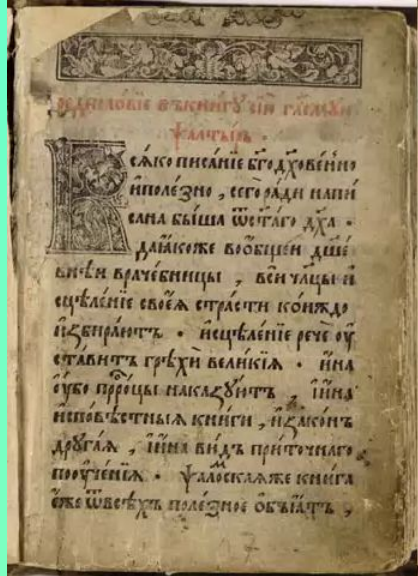 редисловіе въкнигꙋ сїю гл҃ємꙋю
ѱалты́рь ·
Всѧ́ко писа́нїе бг҃од̾ꙋхове́нно
и҆поле́зно , сего̀ ра́ди напи
сана бы́ша ѿст҃а́го дх҃а ·
да꙳ꙗ́коже во ѻ҆́бщей дш҃е
вьнѣ́й враче́бницы , вси чл҃цы и҆
сцѣле́нїе своеѧ̀ стра́сти ко́иждо
и҆збира́ютъ · и҆сцѣле́нїе речѐ оу҆
ста́витъ грѣхѝ вели́кїѧ · и҆́на
оу҆́бо прⷪ҇ро́цы наказꙋ́ютъ , и҆и҆́на
и҆сповѣ́стныѧ кни́ги , и҆зако́нъ
дрꙋга́ѧ , и҆и҆́на ви́дъ при́точнаго
пооуче́нїѧ · ѱало́мскаѧже книга
е҆́же ѿвсѣ́хъ поле́зное ѡ҆б̾ѧ́тъ ,